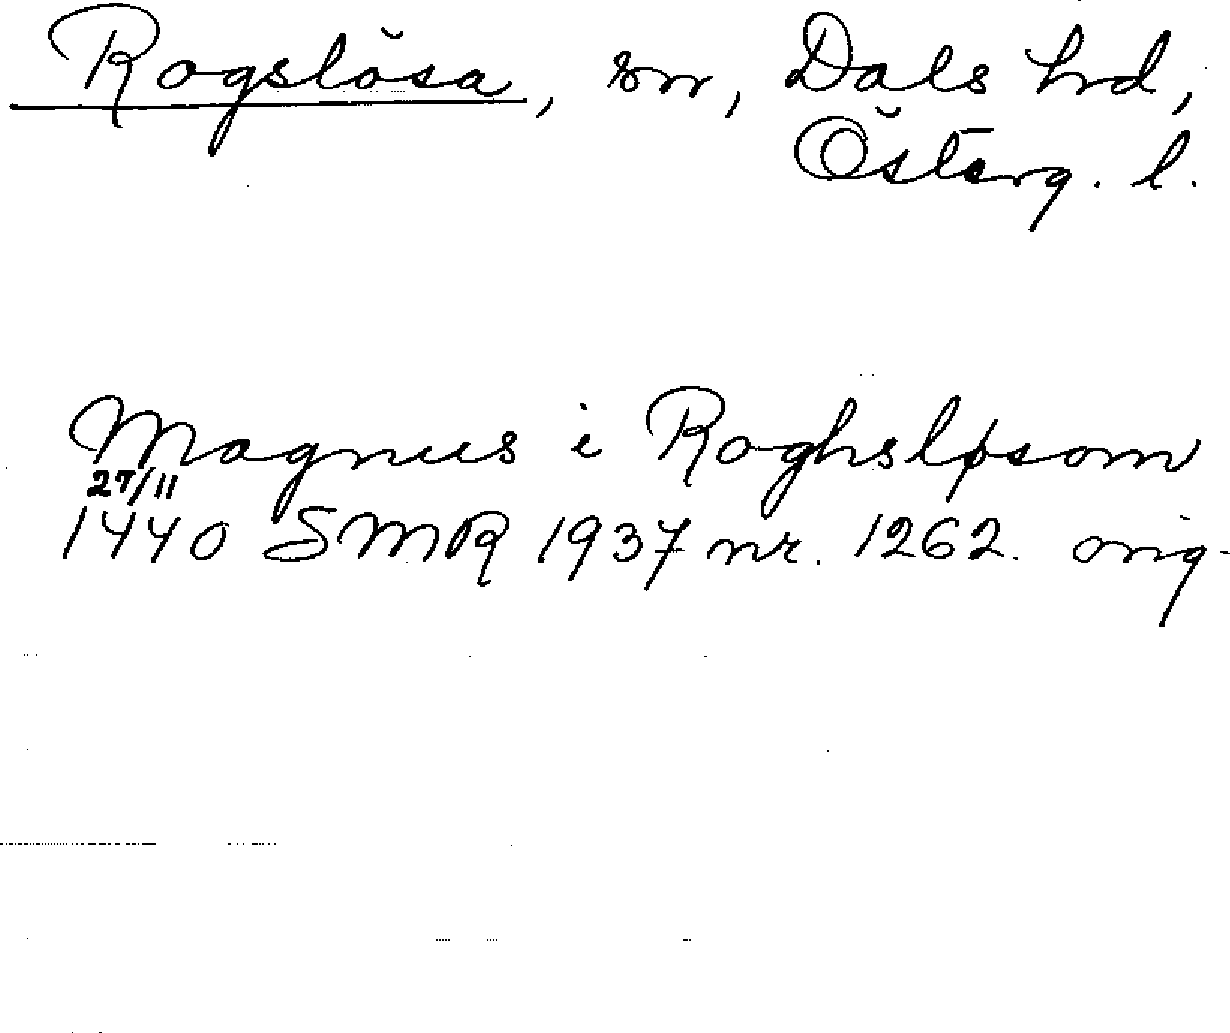 Rogslösa, sn, Dals hd,
Österg. l.
Magnus i Roghsløsom
27/11
1440 SMR 1937 nr. 1262. orig.